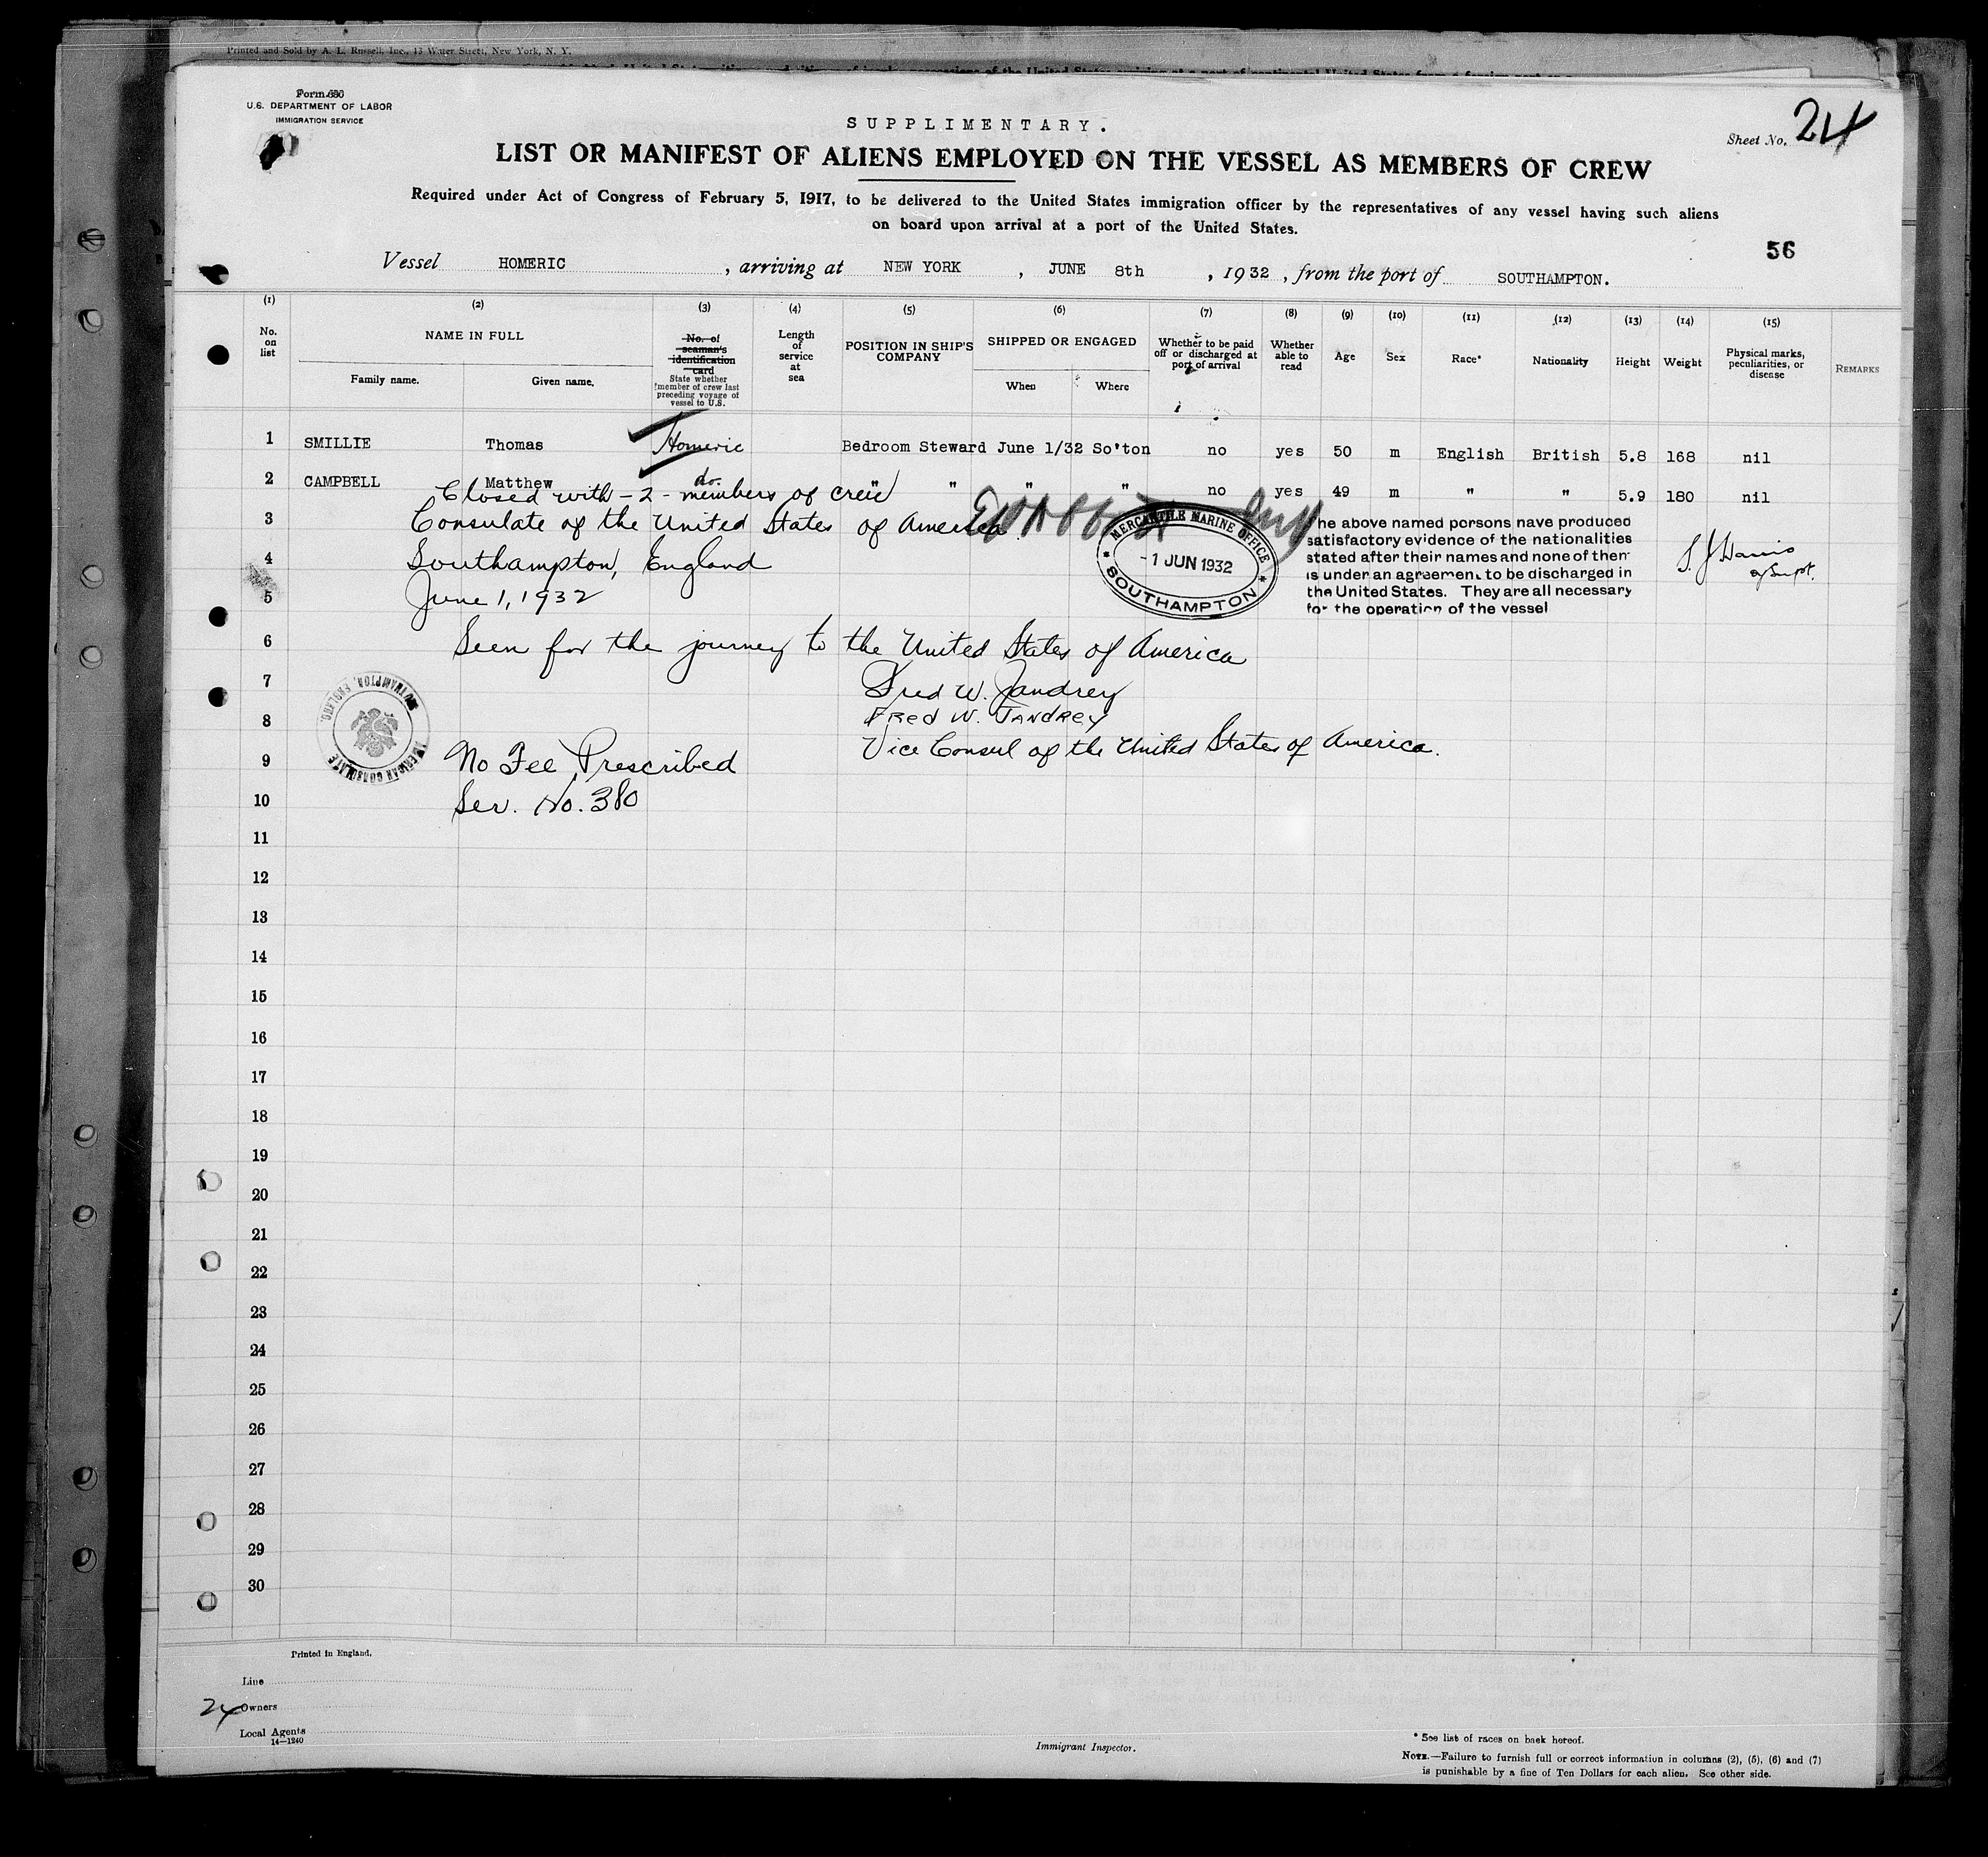 Printed and Sold by A. L. Russell, Inc., 13 Water Street, New York, N. Y.
Form 686
U.S. DEPARTMENT OF LABOR
IMMIGRATION SERVICE
SUPPLIMENTARY.
Sheet No. 24
LIST OR MANIFEST OF ALIENS EMPLOYED ON THE VESSEL AS MEMBERS OF CREW
Required under Act of Congress of February 5, 1917, to be delivered to the United States immigration officer by the representatives of any vessel having such aliens
on board upon arrival at a port of the United States.
56
Vessel HOMERIC, arriving at NEW YORK, JUNE 8th, 1932, from the port of SOUTHAMPTON.
(1) (2) (3) (4) (5) (6) (7) (8) (9) (10) (11) (12) (13) (14) (15)
No. on list
NAME IN FULL
Family name. Given name.
No. of seaman's identification card
State whether member of crew last preceding voyage of vessel to U.S.
Length of service at sea
POSITION IN SHIP'S COMPANY
SHIPPED OR ENGAGED
When Where
Whether to be paid off or discharged at port of arrival
Whether able to read
Age
Sex
Race*
Nationality
Height
Weight
Physical marks, peculiarities, or disease
REMARKS
1 SMILLIE Thomas Homeric Bedroom Steward June 1/32 So'ton no yes 50 m English British 5.8 168 nil
2 CAMPBELL Matthew do. " " " " no yes 49 m " " 5.9 180 nil
Closed with - 2 - members of crew
3 Consulate of the United States of America.
4 Southampton, England
5 June 1, 1932
MERCANTILE MARINE OFFICE
-1 JUN 1932
SOUTHAMPTON
The above named persons have produced
satisfactory evidence of the nationalities
stated after their names and none of them
is under an agreement to be discharged in
the United States. They are all necessary
for the operation of the vessel
6 Seen for the journey to the United States of America
7 Fred W. Jandrey
8 FRed W. JANdRey
Vice Consul of the United States of America.
AMERICAN CONSULATE SOUTHAMPTON, ENGLAND.
9 No Fee Prescribed
10 Ser. No. 380
11
12
13
14
15
16
17
18
19
20
21
22
23
24
25
26
27
28
29
30
Printed in England.
Line
24 Owners
Local Agents
14—1240
Immigrant Inspector.
* See list of races on back hereof.
NOTE.—Failure to furnish full or correct information in columns (2), (5), (6) and (7)
is punishable by a fine of Ten Dollars for each alien. See other side.